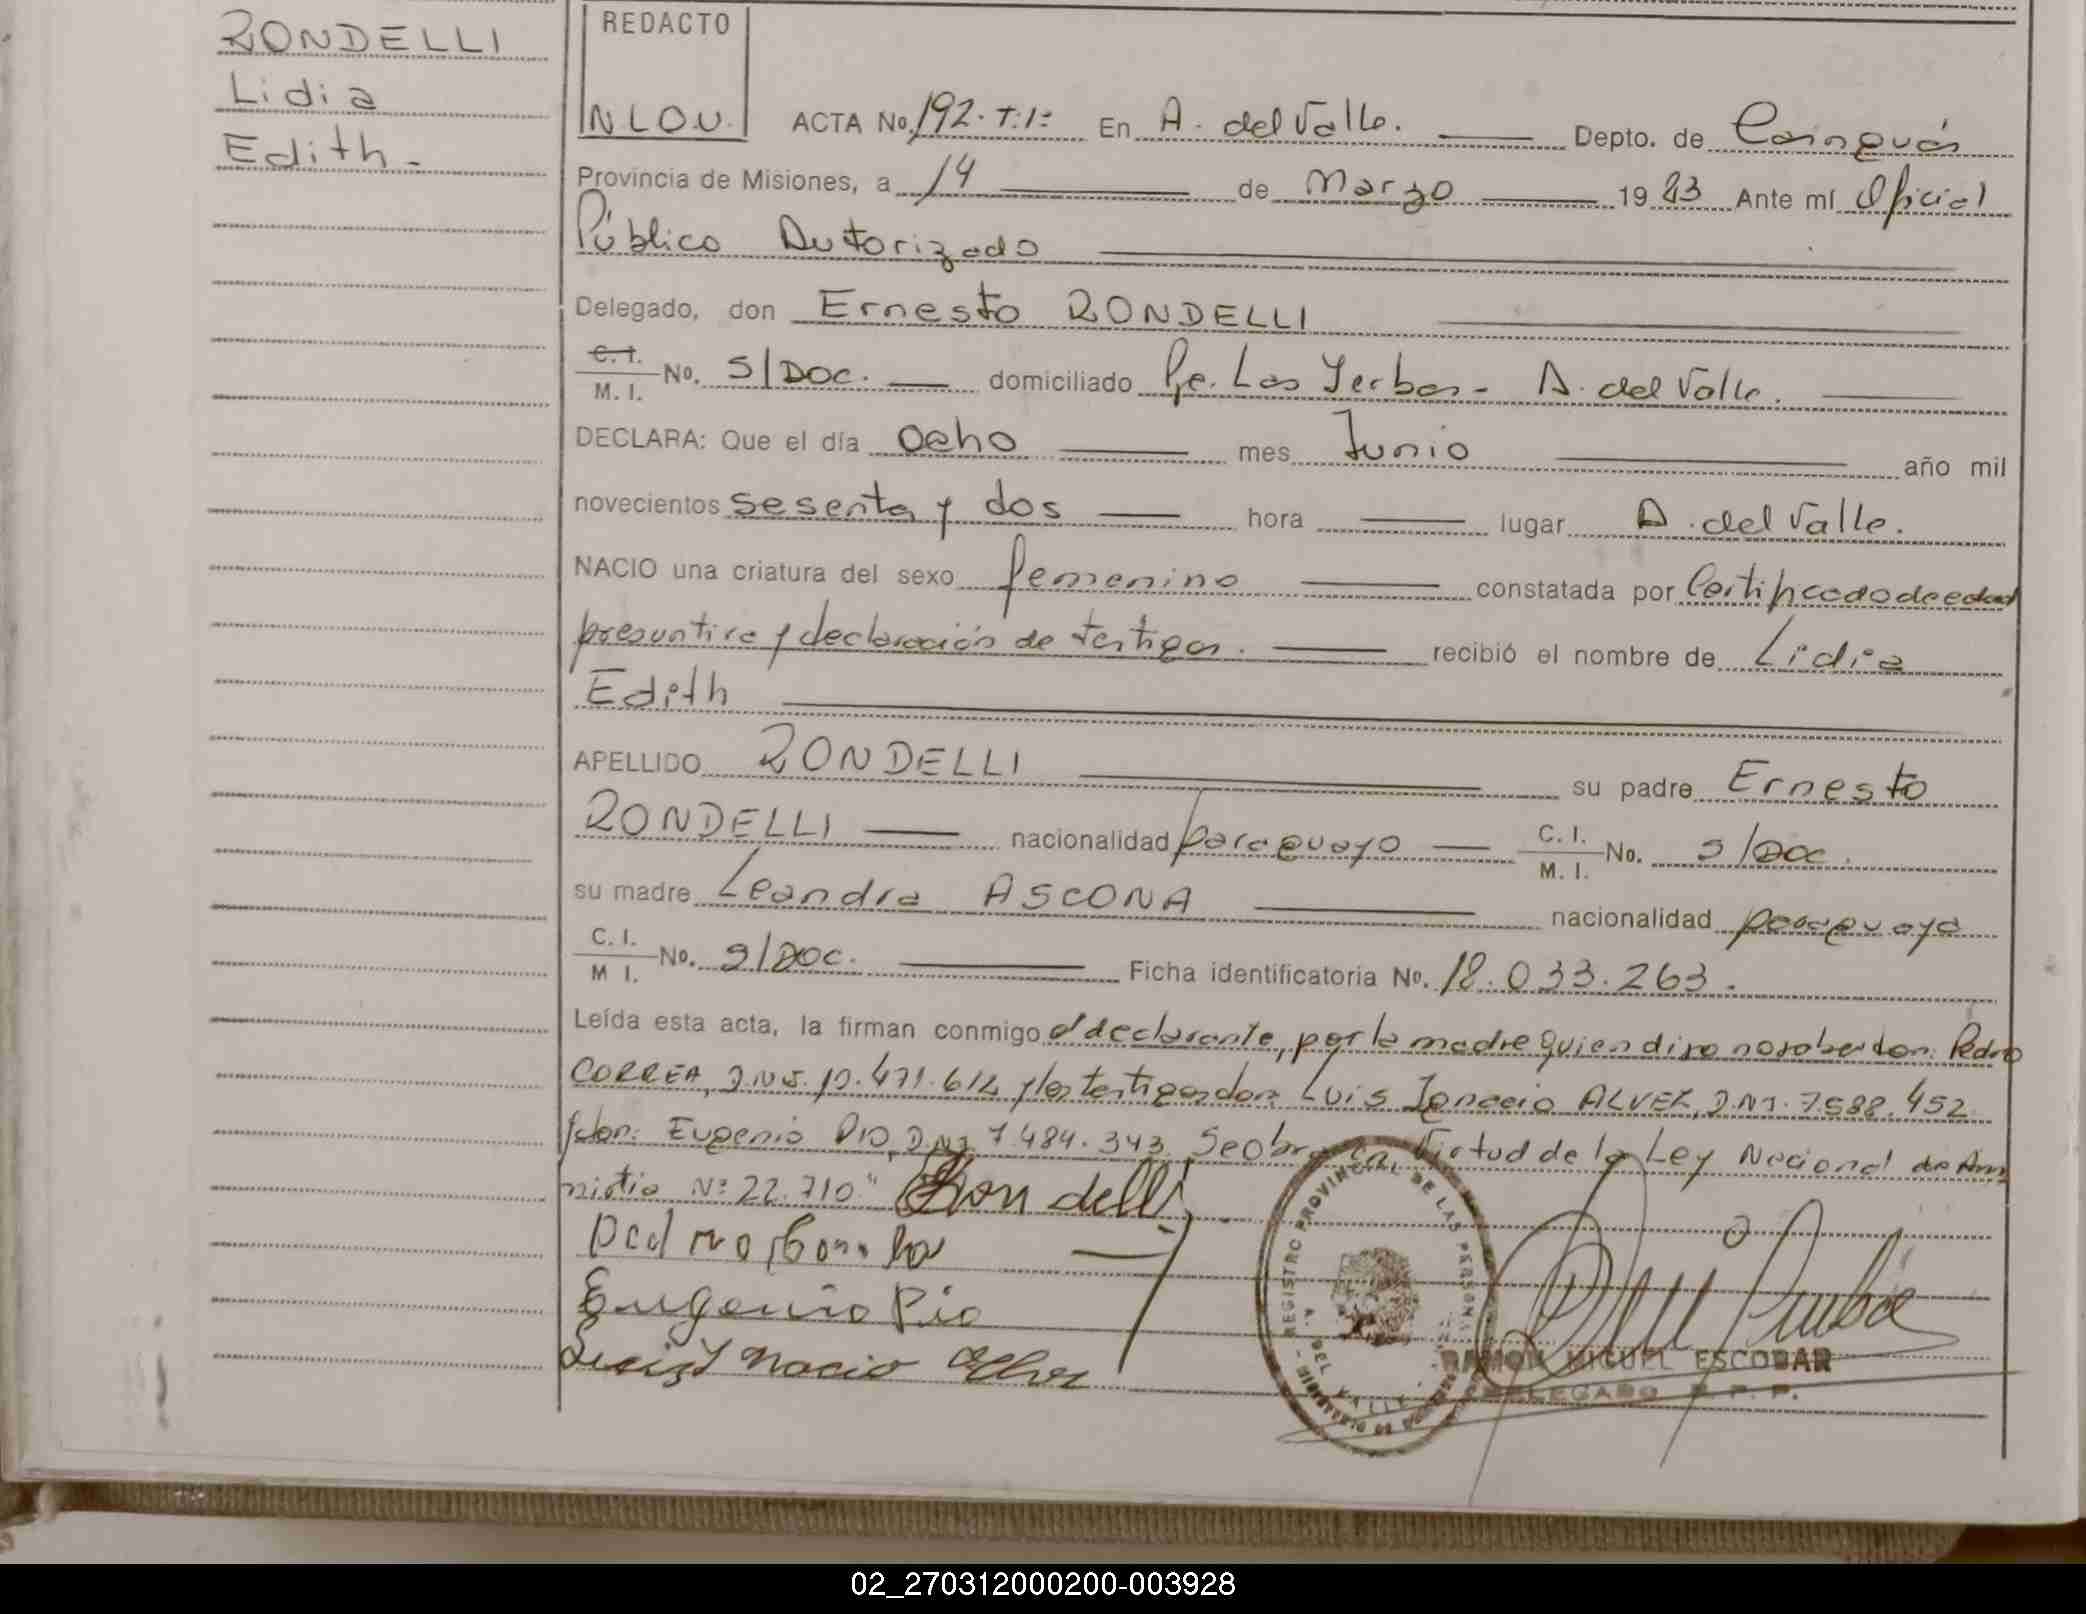 RONDELLI
Lidia
Edith.-
REDACTO
N L O V.
ACTA No. 192. T.1º En A. del Valle. Depto. de Cainguás
Provincia de Misiones, a 14 de Marzo 1983 Ante mí Oficial
Público Autorizado
Delegado, don Ernesto RONDELLI
C.I. M.I. No. S/Doc. domiciliado Pje. Las Yerbas - A. del Valle.
DECLARA: Que el día ocho mes Junio año mil
novecientos sesenta y dos hora lugar A. del Valle.
NACIO una criatura del sexo femenino constatada por Certificado de edad
presuntiva y declaración de testigos. recibió el nombre de Lidia
Edith
APELLIDO RONDELLI su padre Ernesto
RONDELLI nacionalidad paraguayo C. I. M. I. No. S/Doc.
su madre Leandra ASCONA nacionalidad paraguaya
C. I. M I. No. S/Doc. Ficha identificatoria No. 18.033.263.
Leída esta acta, la firman conmigo el declarante, por la madre quien dijo no saber don: Pedro
CORREA, D.N.I. y los testigos don: Luis Ignacio ALVEZ, D.N.I. 7.588.452
y don: Eugenio PIO, D.N.I. 7.484.343. Se obra en Virtud de la Ley Nacional de Am
nistia Nº 22.710" Rondelli
Eugenio Pio
Luis Ygnacio
REGISTRO PROVINCIAL DE LAS PERSONAS
A. DEL VALLE
RAMON MIGUEL ESCOBAR
DELEGADO R. P. P.
02_270312000200-003928